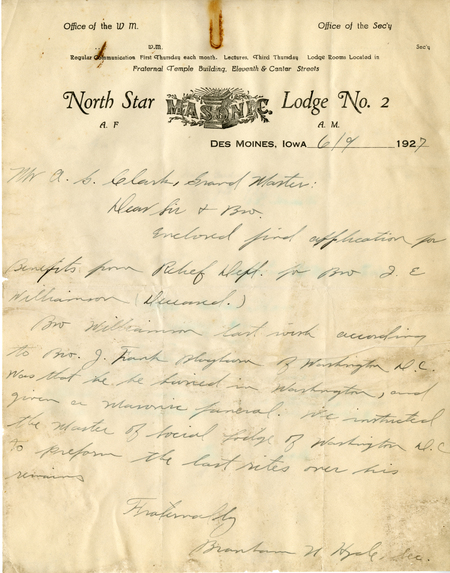 Office of the W M.
Office of the Sec'y
W.M.
Sec'y
Regular Communication First Thursday each month. Lectures, Third Thursday Lodge Rooms Located in
Fraternal Temple Building, Eleventh & Center Streets
North Star MASONIC Lodge No. 2
A. F A. M.
DES MOINES, IOWA 6/9 1927
Mr A. C. Clark, Grand Master:
Dear Sir & Bro.
Enclosed find application for
Benefits from Relief Dept. for Bro J. E
Williamson (Deceased.)
Bro Williamson last wish according
to Bro. J. Frank of Washington D.C.
was that he be buried in Washington, and
given a Masonic funeral. We instructed
the Master of Social Lodge of Washington D.C
to preform the last rites over his
remains
Fraternally
H. Hyde, Sec.